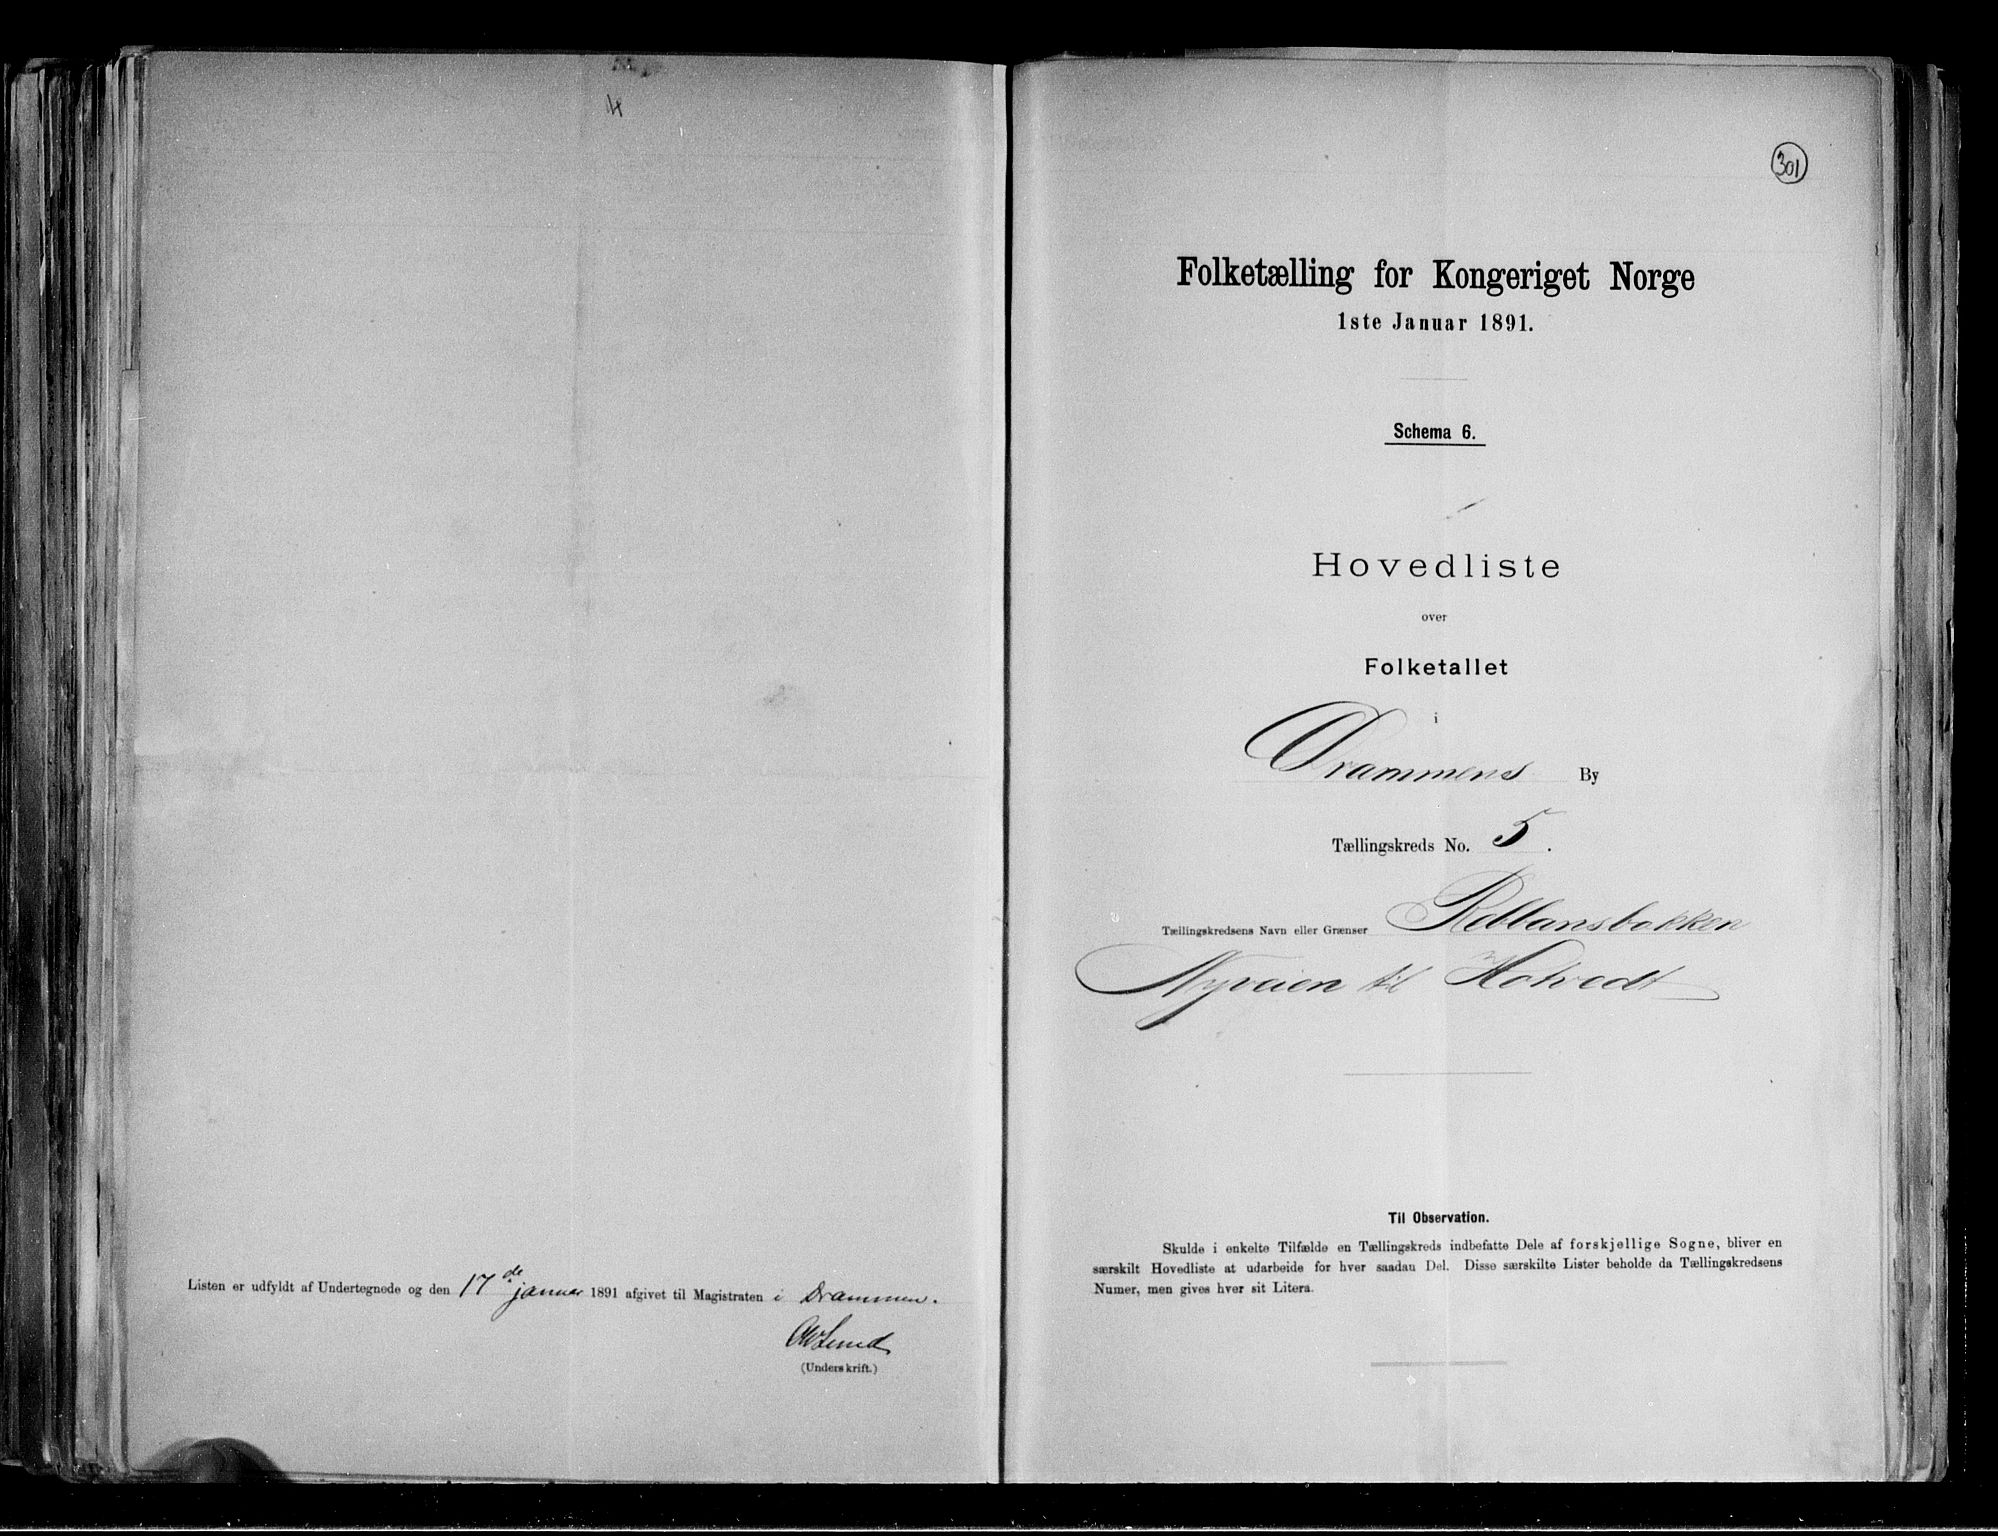 4
Listen er udfyldt af Undertegnede og den 17de januar 1891 afgivet til Magistraten i Drammen.
Lund
(Underskrift.)
301
Folketælling for Kongeriget Norge
1ste Januar 1891.
Schema 6.
Hovedliste
over
Folketallet
i
Drammens By
Tællingskreds No. 5.
Tællingskredsens Navn eller Grænser
Nyveien til Hotvedt
Til Observation.
Skulde i enkelte Tilfælde en Tællingskreds indbefatte Dele af forskjellige Sogne, bliver en
særskilt Hovedliste at udarbeide for hver saadan Del. Disse særskilte Lister beholde da Tællingskredsens
Numer, men gives hver sit Litera.